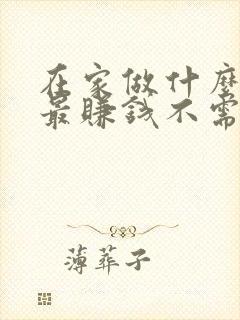 在家做什麼
最賺錢不需
薄葬子